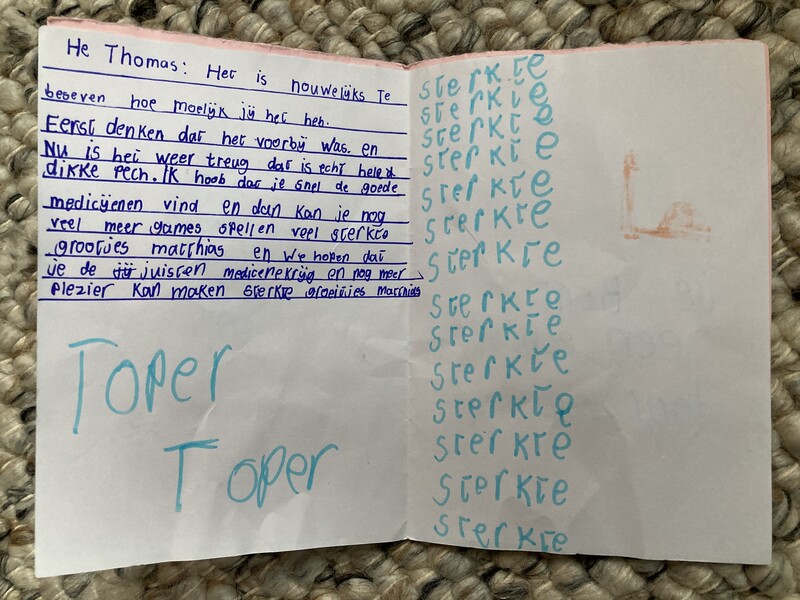 He Thomas: Het is nouwelijks te
beseven hoe moelijk jij het heb.
Eerst denken dat het voorbij was. en
Nu is het weer treug dat is echt hele
dikke pech. Ik hoob dat je snel de goede
medicijenen vind en dan kan je nog
veel meer games spellen veel sterkte
grootjes matthias en we hopen dat
je de juisten medicenekrijg en nog meer
plezier kan maken sterkte groetjes matthias
Toper
Toper
sterkte
sterkte
sterkte
sterkte
sterkte
sterkte
sterkte
sterkte
sterkte
sterkte
sterkte
sterkte
sterkte
sterkte